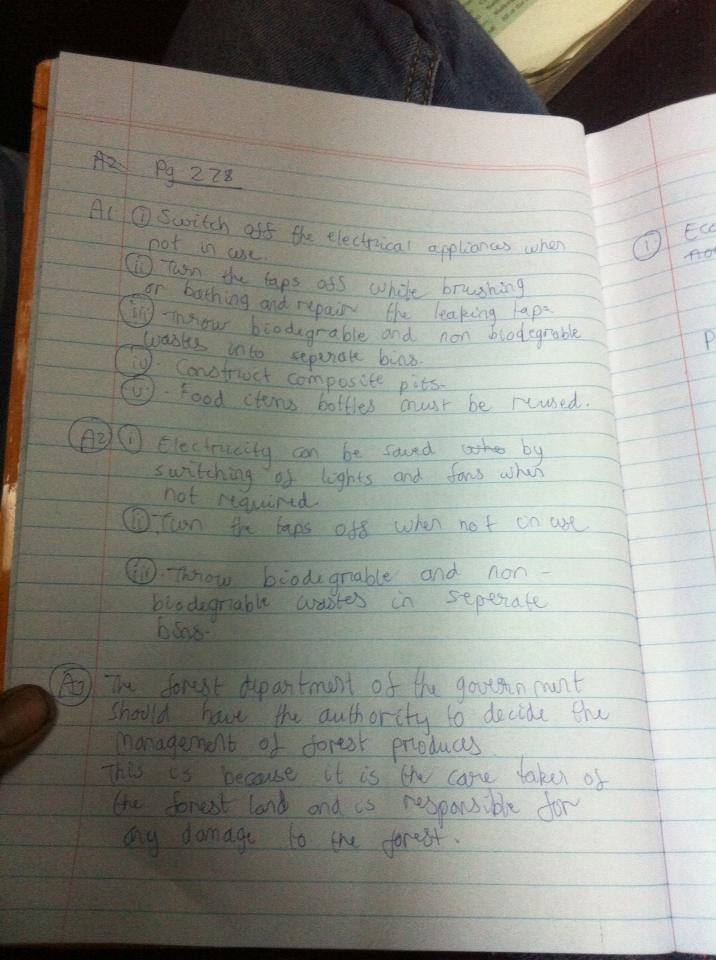 A2 Pg 228
A1. (i) Switch off the electrical appliances when
not in use.
(ii) Turn the taps off while brushing
or bathing and repair the leaking taps
(iii) Throw biodegrable and non biodegrable
wastes into seperate bins.
(iv). Construct composite pits.
(v). Food items bottles must be reused.
A2 (i) Electricity can be saved by
switching of lights and fans when
not required.
(ii). Turn the taps off when not in use
(iii). Throw biodegriable and non -
biodegriable wastes in seperate
bins.
The forest department of the government
should have the authority to decide the
management of forest produces.
This is because it is the care taker of
the forest land and is responsible for
any damage to the forest.
(1) Eco
P